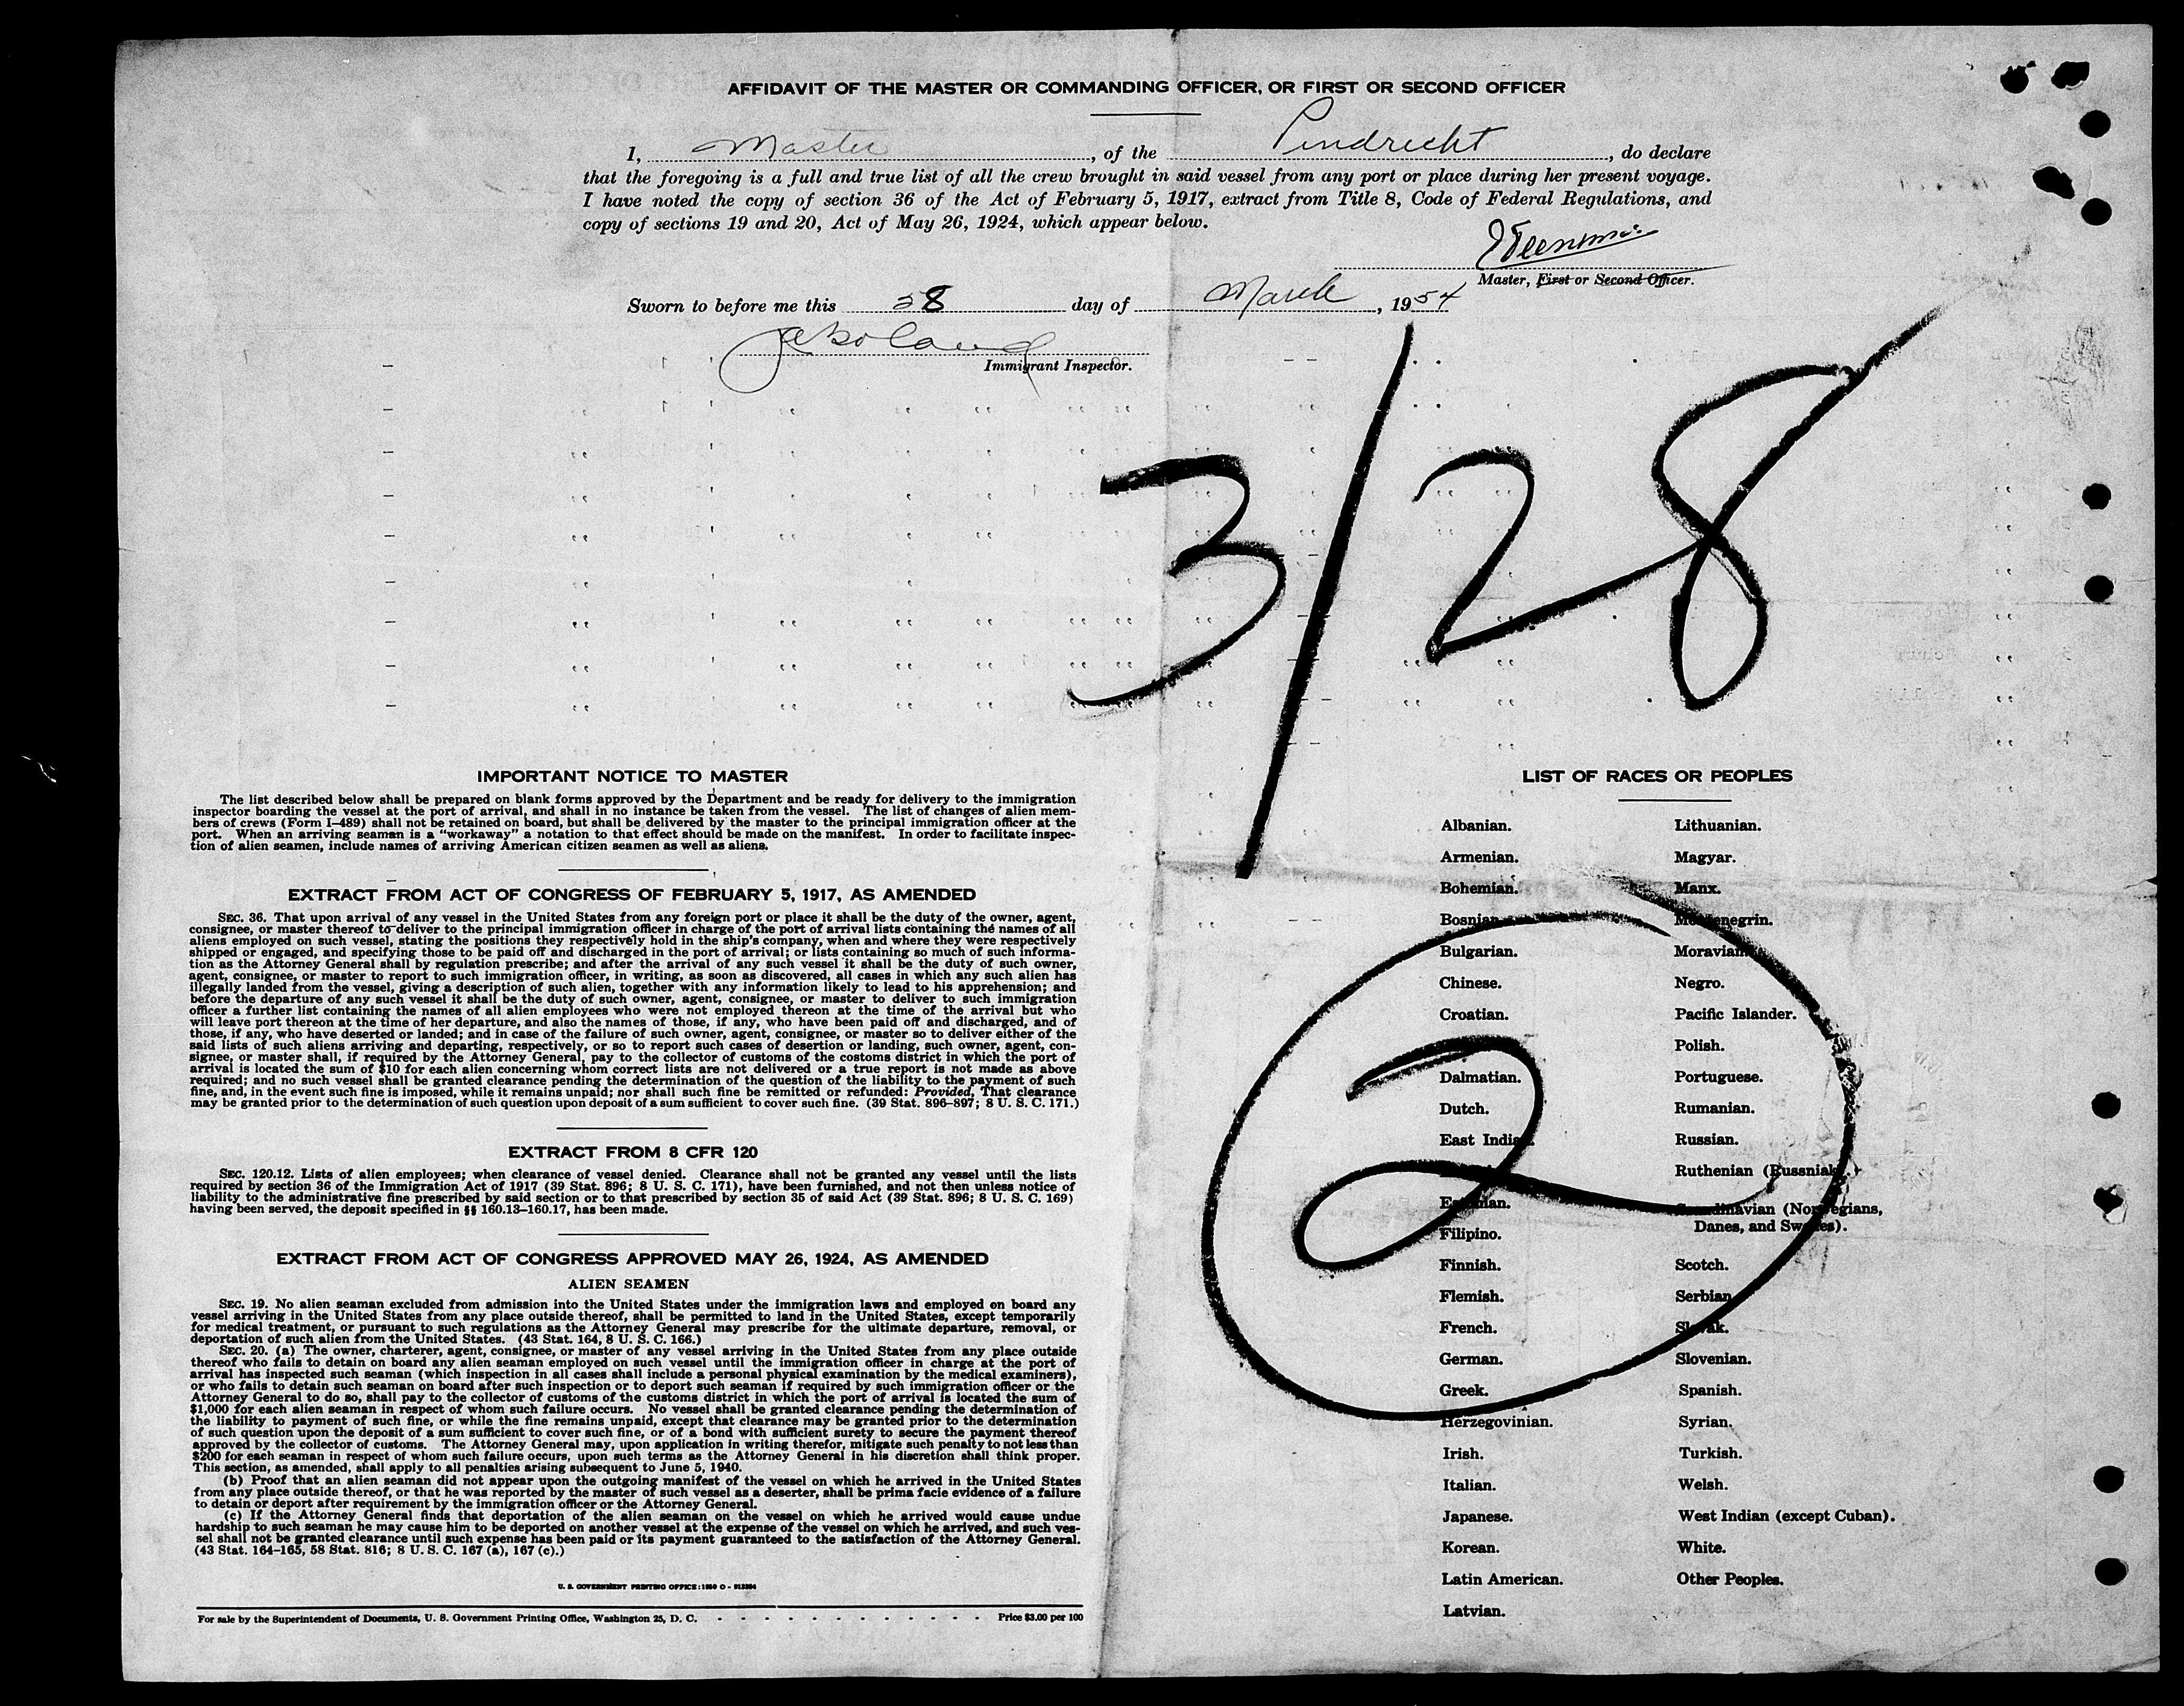 AFFIDAVIT OF THE MASTER OR COMMANDING OFFICER, OR FIRST OR SECOND OFFICER
I, Master, of the Pendrecht, do declare
that the foregoing is a full and true list of all the crew brought in said vessel from any port or place during her present voyage.
I have noted the copy of section 36 of the Act of February 5, 1917, extract from Title 8, Code of Federal Regulations, and
copy of sections 19 and 20, Act of May 26, 1924, which appear below.
Master, First or Second Officer.
Sworn to before me this 28 day of March, 1954
Immigrant Inspector.
3/28
IMPORTANT NOTICE TO MASTER
The list described below shall be prepared on blank forms approved by the Department and be ready for delivery to the immigration
inspector boarding the vessel at the port of arrival, and shall in no instance be taken from the vessel. The list of changes of alien mem-
bers of crews (Form I-489) shall not be retained on board, but shall be delivered by the master to the principal immigration officer at the
port. When an arriving seaman is a "workaway" a notation to that effect should be made on the manifest. In order to facilitate inspec-
tion of alien seamen, include names of arriving American citizen seamen as well as aliens.
EXTRACT FROM ACT OF CONGRESS OF FEBRUARY 5, 1917, AS AMENDED
SEC. 36. That upon arrival of any vessel in the United States from any foreign port or place it shall be the duty of the owner, agent,
consignee, or master thereof to deliver to the principal immigration officer in charge of the port of arrival lists containing the names of all
aliens employed on such vessel, stating the positions they respectively hold in the ship's company, when and where they were respectively
shipped or engaged, and specifying those to be paid off and discharged in the port of arrival; or lists containing so much of such informa-
tion as the Attorney General shall by regulation prescribe; and after the arrival of any such vessel it shall be the duty of such owner,
agent, consignee, or master to report to such immigration officer, in writing, as soon as discovered, all cases in which any such alien has
illegally landed from the vessel, giving a description of such alien, together with any information likely to lead to his apprehension; and
before the departure of any such vessel it shall be the duty of such owner, agent, consignee, or master to deliver to such immigration
officer a further list containing the names of all alien employees who were not employed thereon at the time of the arrival but who
will leave port thereon at the time of her departure, and also the names of those, if any, who have been paid off and discharged, and of
those, if any, who have deserted or landed; and in case of the failure of such owner, agent, consignee, or master so to deliver either of the
said lists of such aliens arriving and departing, respectively, or so to report such cases of desertion or landing, such owner, agent, con-
signee, or master shall, if required by the Attorney General, pay to the collector of customs of the costoms district in which the port of
arrival is located the sum of $10 for each alien concerning whom correct lists are not delivered or a true report is not made as above
required; and no such vessel shall be granted clearance pending the determination of the question of the liability to the payment of such
fine, and, in the event such fine is imposed, while it remains unpaid; nor shall such fine be remitted or refunded: Provided, That clearance
may be granted prior to the determination of such question upon deposit of a sum sufficient to cover such fine. (39 Stat. 896-897; 8 U. S. C. 171.)
EXTRACT FROM 8 CFR 120
SEC. 120.12. Lists of alien employees; when clearance of vessel denied. Clearance shall not be granted any vessel until the lists
required by section 36 of the Immigration Act of 1917 (39 Stat. 896; 8 U. S. C. 171), have been furnished, and not then unless notice of
liability to the administrative fine prescribed by said section or to that prescribed by section 35 of said Act (39 Stat. 896; 8 U. S. C. 169)
having been served, the deposit specified in §§ 160.13-160.17, has been made.
EXTRACT FROM ACT OF CONGRESS APPROVED MAY 26, 1924, AS AMENDED
ALIEN SEAMEN
SEC. 19. No alien seaman excluded from admission into the United States under the immigration laws and employed on board any
vessel arriving in the United States from any place outside thereof, shall be permitted to land in the United States, except temporarily
for medical treatment, or pursuant to such regulations as the Attorney General may prescribe for the ultimate departure, removal, or
deportation of such alien from the United States. (43 Stat. 164, 8 U. S. C. 166.)
SEC. 20. (a) The owner, charterer, agent, consignee, or master of any vessel arriving in the United States from any place outside
thereof who fails to detain on board any alien seaman employed on such vessel until the immigration officer in charge at the port of
arrival has inspected such seaman (which inspection in all cases shall include a personal physical examination by the medical examiners),
or who fails to detain such seaman on board after such inspection or to deport such seaman if required by such immigration officer or the
Attorney General to do so, shall pay to the collector of customs of the customs district in which the port of arrival is located the sum of
$1,000 for each alien seaman in respect of whom such failure occurs. No vessel shall be granted clearance pending the determination of
the liability to payment of such fine, or while the fine remains unpaid, except that clearance may be granted prior to the determination
of such question upon the deposit of a sum sufficient to cover such fine, or of a bond with sufficient surety to secure the payment thereof
approved by the collector of customs. The Attorney General may, upon application in writing therefor, mitigate such penalty to not less than
$200 for each seaman in respect of whom such failure occurs, upon such terms as the Attorney General in his discretion shall think proper.
This section, as amended, shall apply to all penalties arising subsequent to June 5, 1940.
(b) Proof that an alien seaman did not appear upon the outgoing manifest of the vessel on which he arrived in the United States
from any place outside thereof, or that he was reported by the master of such vessel as a deserter, shall be prima facie evidence of a failure
to detain or deport after requirement by the immigration officer or the Attorney General.
(c) If the Attorney General finds that deportation of the alien seaman on the vessel on which he arrived would cause undue
hardship to such seaman he may cause him to be deported on another vessel at the expense of the vessel on which he arrived, and such ves-
sel shall not be granted clearance until such expense has been paid or its payment guaranteed to the satisfaction of the Attorney General.
(43 Stat. 164-165, 58 Stat. 816; 8 U. S. C. 167 (a), 167 (c).)
U. S. GOVERNMENT PRINTING OFFICE: 1950 O -
For sale by the Superintendent of Documents, U. S. Government Printing Office, Washington 25, D. C. - - - - - - - - - - - - Price $3.00 per 100
LIST OF RACES OR PEOPLES
Albanian.
Armenian.
Bohemian.
Bosnian.
Bulgarian.
Chinese.
Croatian.
Dalmatian.
Dutch.
East Indian.
Filipino.
Finnish.
Flemish.
French.
German.
Greek.
Herzegovinian.
Irish.
Italian.
Japanese.
Korean.
Latin American.
Latvian.
Lithuanian.
Magyar.
Manx.
Montenegrin.
Moravian.
Negro.
Pacific Islander.
Polish.
Portuguese.
Rumanian.
Russian.
Ruthenian (Russniak).
Scandinavian (Norwegians,
Danes, and Swedes).
Scotch.
Serbian.
Slovak.
Slovenian.
Spanish.
Syrian.
Turkish.
Welsh.
West Indian (except Cuban).
White.
Other Peoples.
2